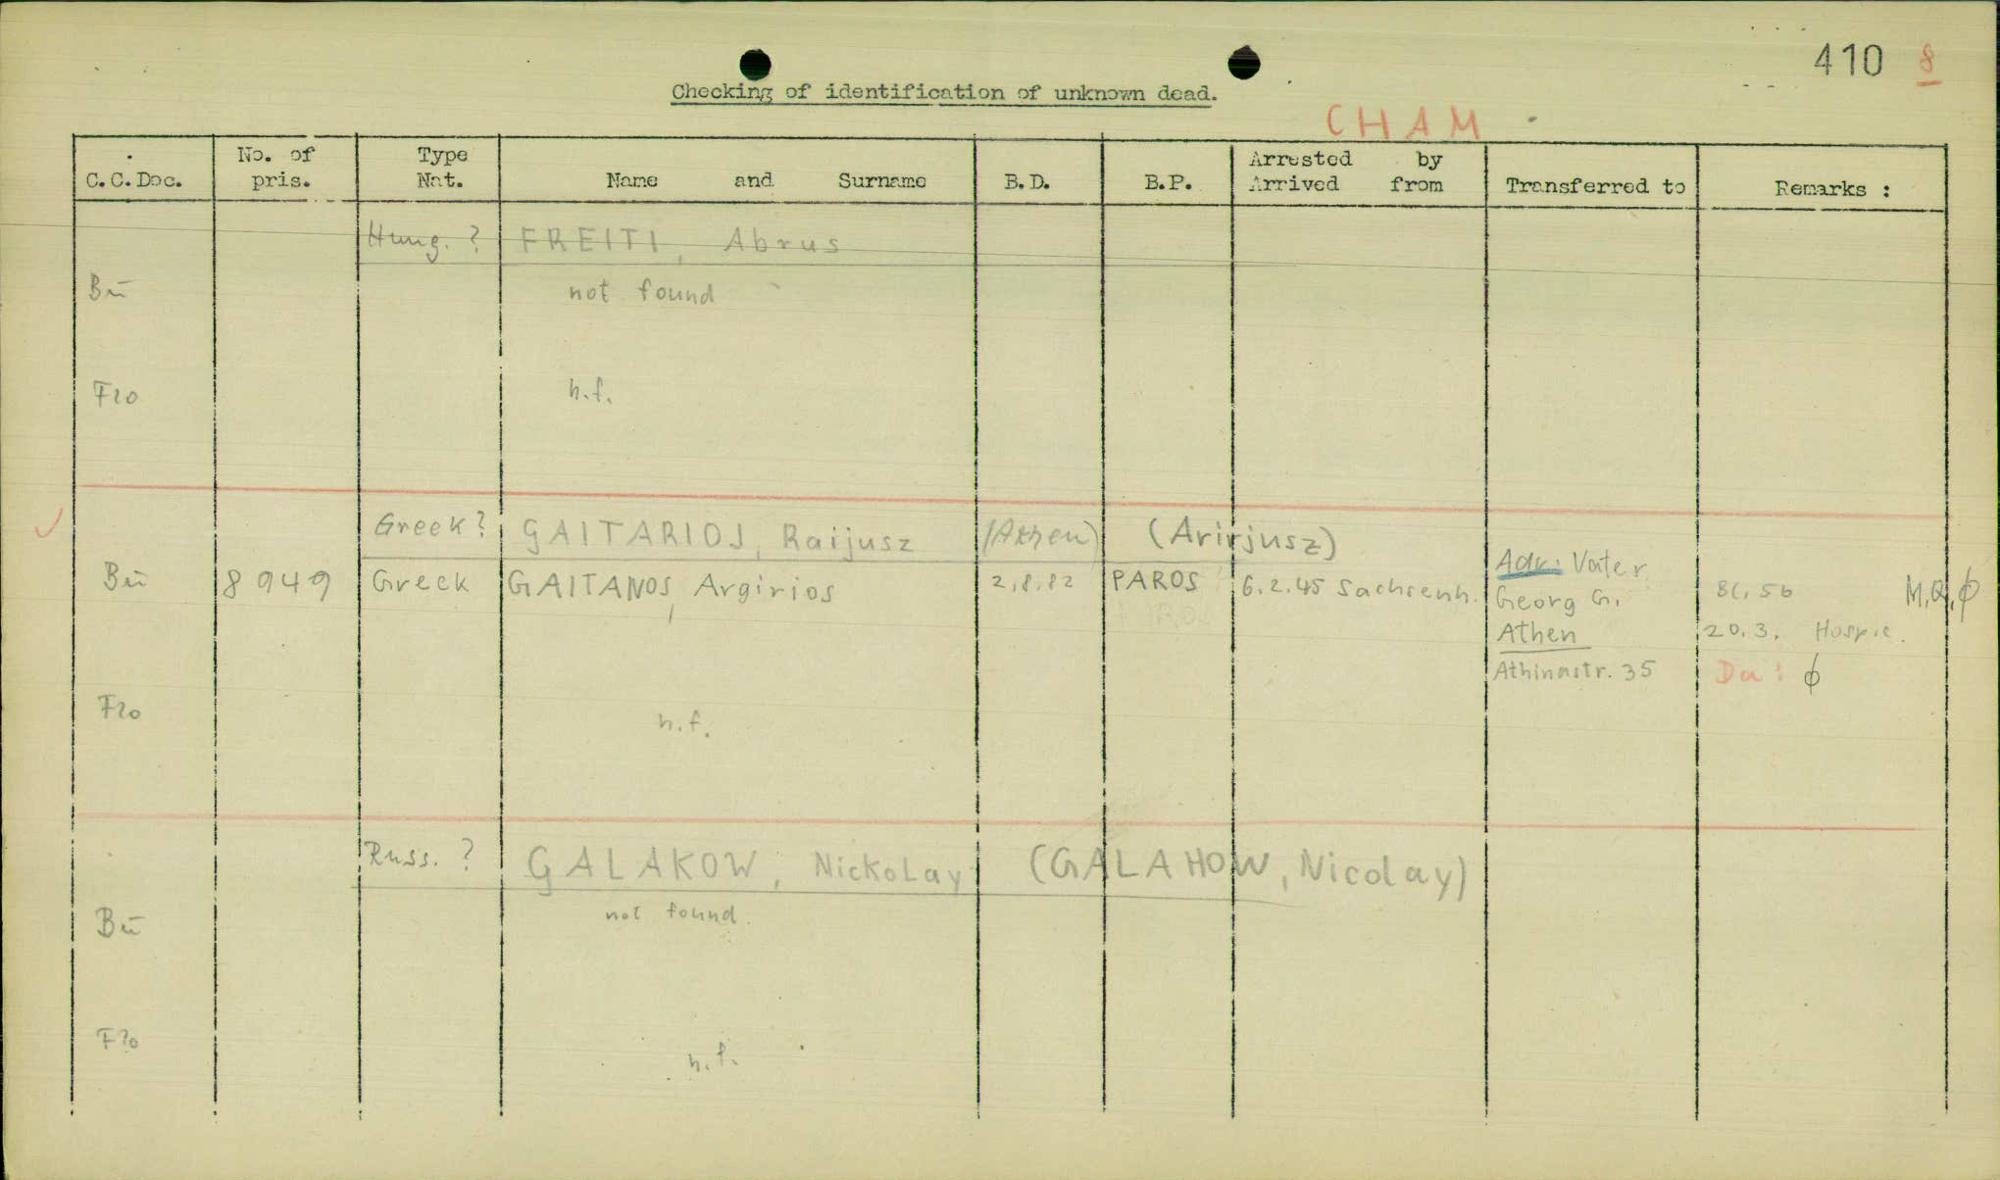 410 8
Checking of identification of unknown dead.
CHAM
C.C.Doc. No. of pris. Type Nat. Name and Surname B.D. B.P. Arrested by Arrived from Transferred to Remarks :
Hung. ? FREITI, Abrus
Bū not found
Flo n.f.
Greek? GAITARIOJ, Raijusz (Athen) (Arirjusz)
Bū 8949 Greek GAITANOS, Argirios 2.8.82 PAROS 6.2.45 Sachsenh. Adr: Vater Bl. 56 M,Q,ϕ
Georg G.
Athen 20.3. Hospic.
Athinastr. 35 Da: ϕ
Flo n.f.
Russ. ? GALAKOW, Nickolay (GALAHOW, Nicolay)
Bū not found
Flo n.f.